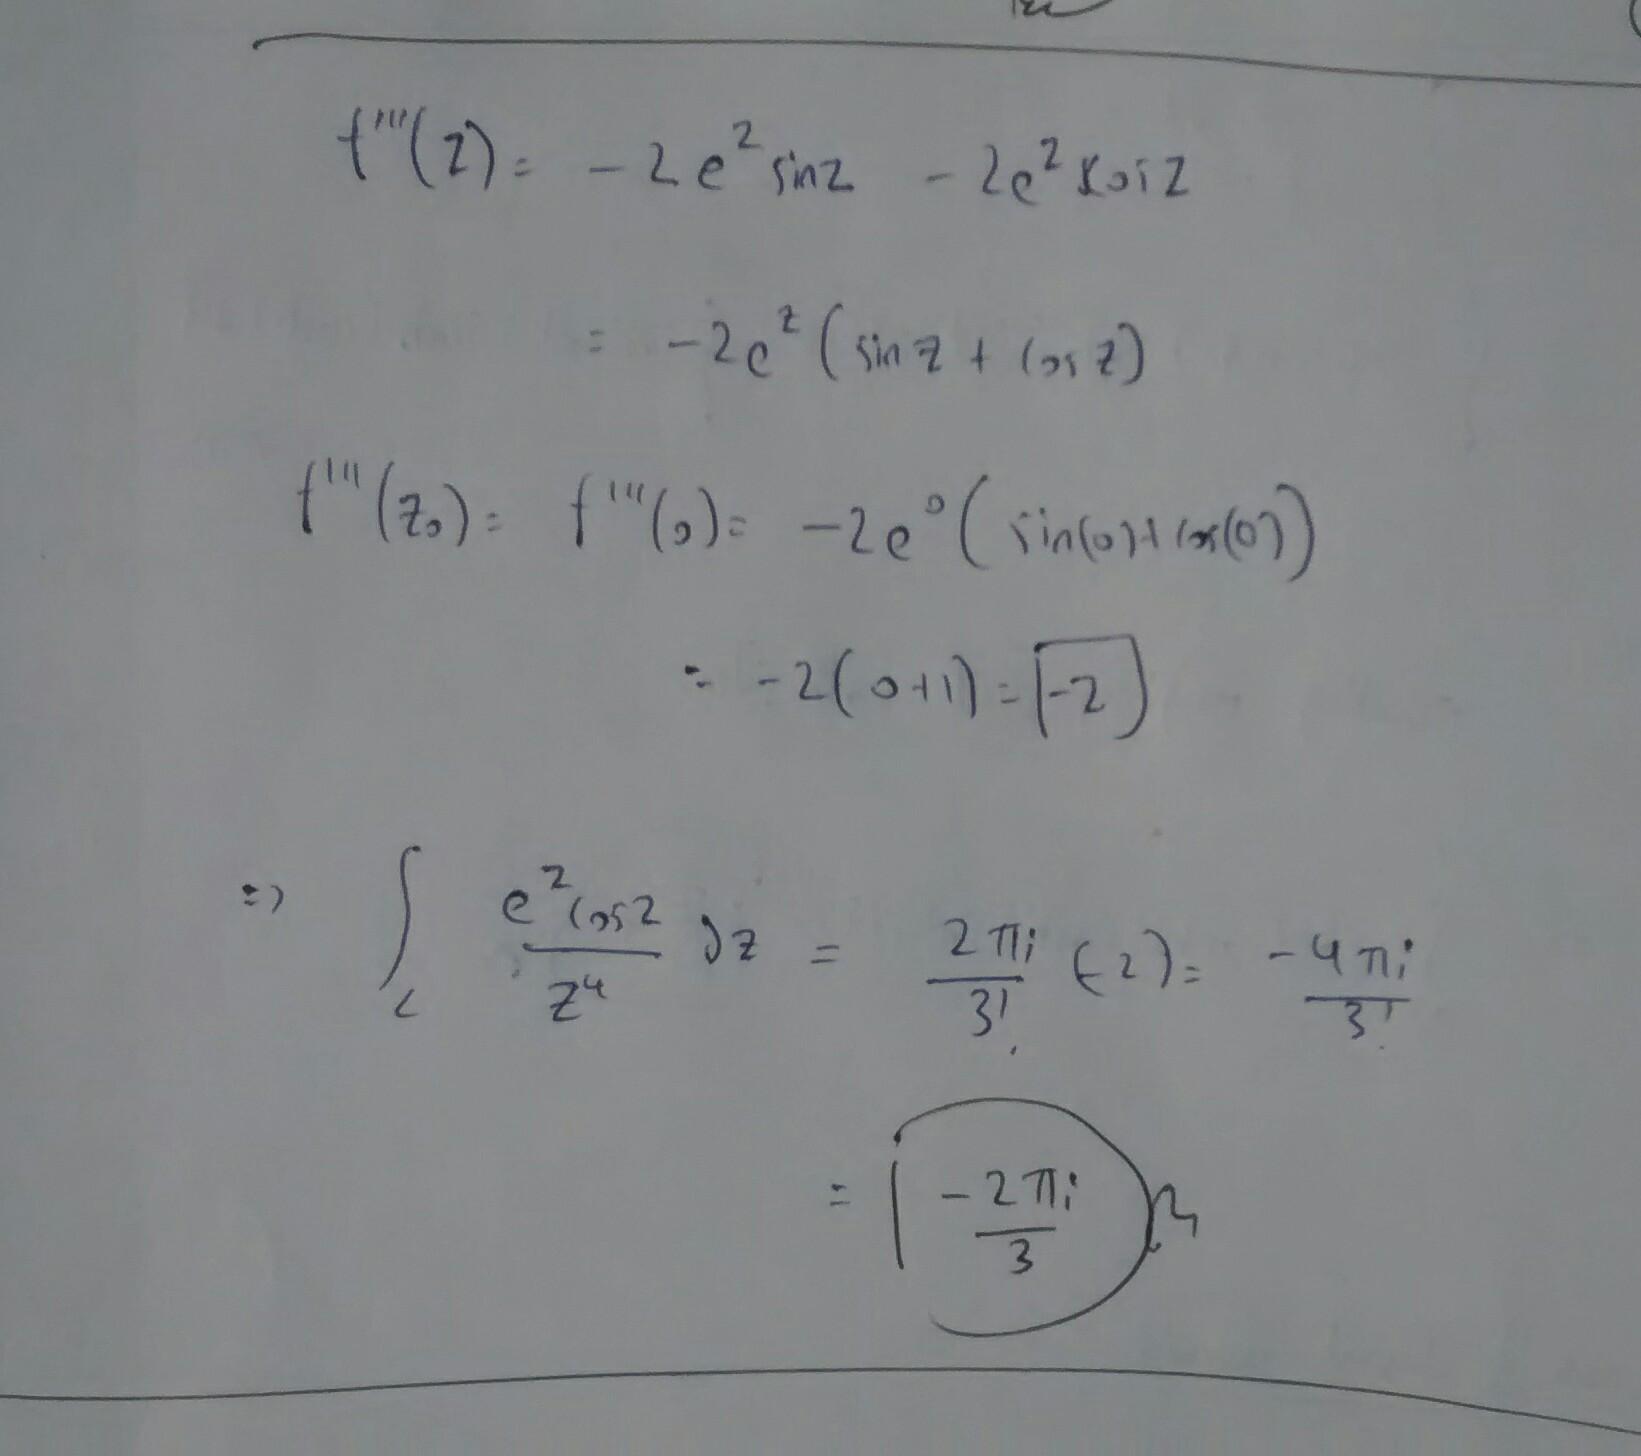 f'''(z) = -2e^z sin z - 2e^z cos z
= -2e^z (sin z + cos z)
f'''(z₀) = f'''(0) = -2e^0 (sin(0) + cos(0))
= -2(0+1) = -2
=> ∫_C e^z cos z / z^4 dz = 2πi / 3! (-2) = -4πi / 3!
= -2πi / 3